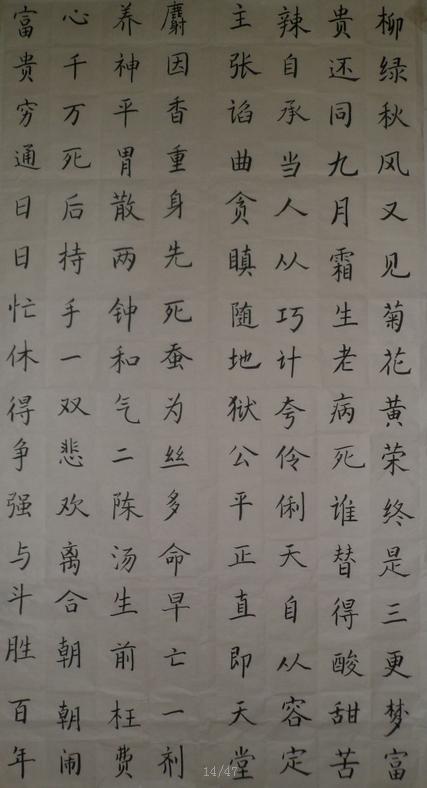 柳绿秋风又见菊花黄荣终是三更梦富
贵还同九月霜生老病死谁替得酸甜苦
辣自承当人从巧计夸伶俐天自从容定
主张谄曲贪瞋随地狱公平正直即天堂
麝因香重身先死蚕为丝多命早亡一剂
养神平胃散两钟和气二陈汤生前枉费
心千万死后持手一双悲欢离合朝朝闹
富贵穷通日日忙休得争强与斗胜百年
14/47